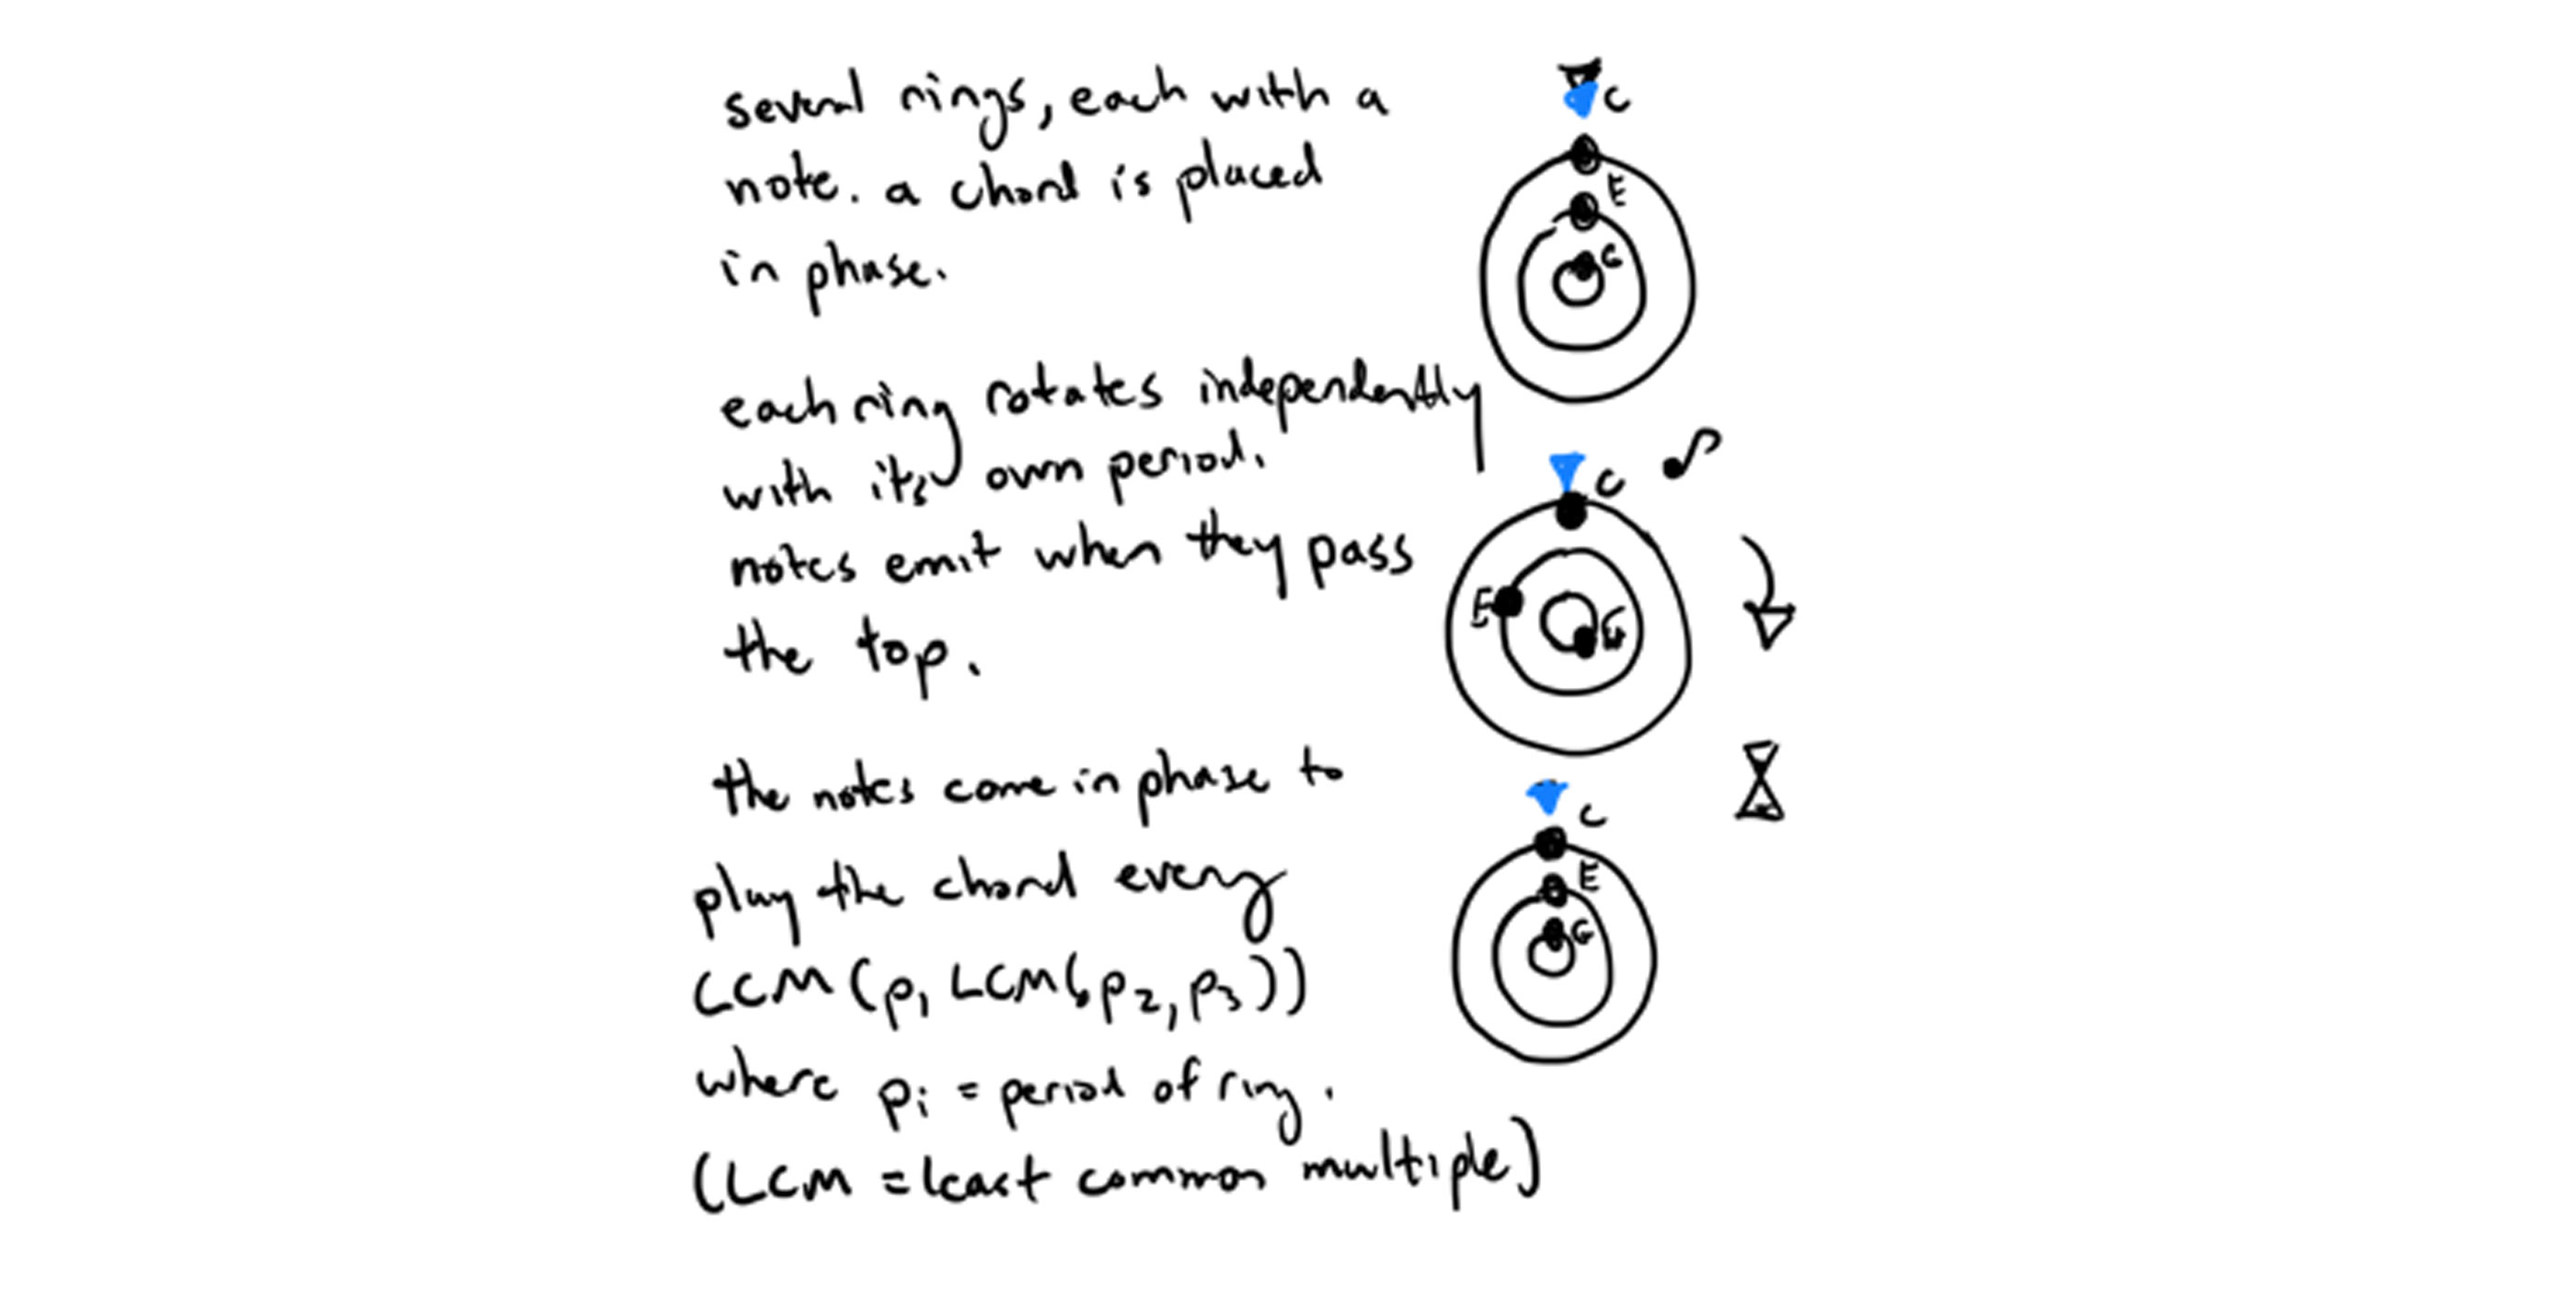 several rings, each with a
note. a chord is placed
in phase.
C
E
G
each ring rotates independently
with its own period.
notes emit when they pass
the top.
C
E
G
the notes come in phase to
play the chord every
LCM(p1 LCM(p2, p3))
where pi = period of ring.
(LCM = least common multiple)
C
E
G